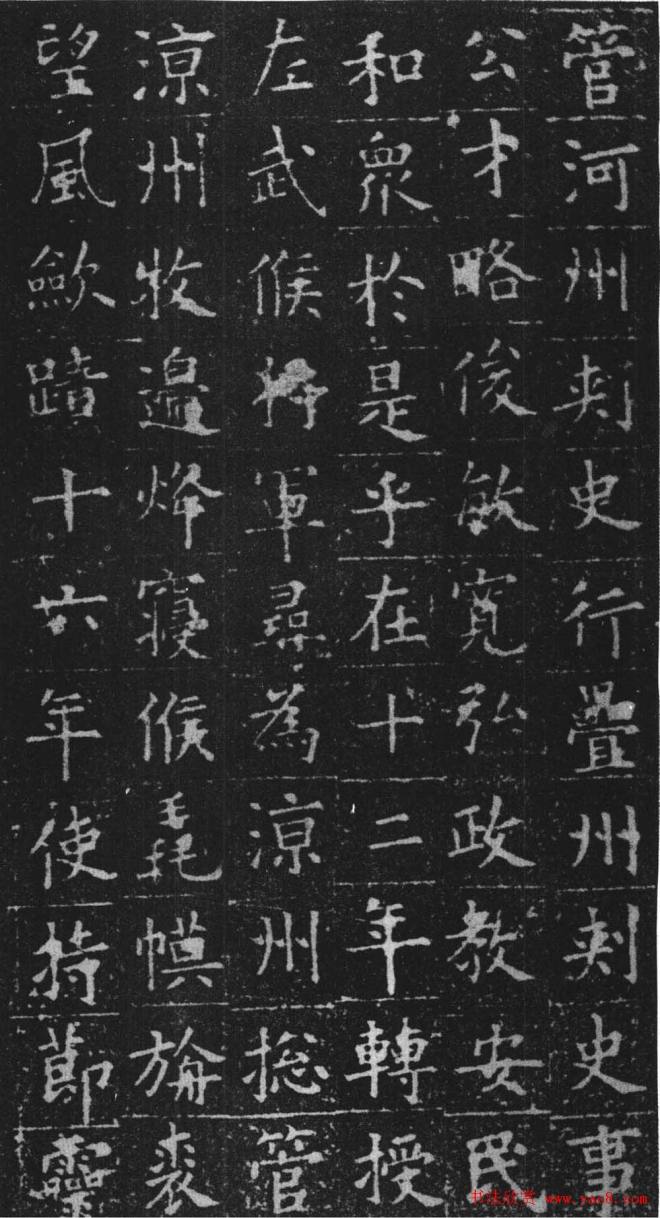 管河州刾史行疊州刾史事
公才略俊敏寛弘政教安民
和衆於是乎在十二年轉授
左武候將軍尋為涼州摠管
涼州牧邉烽寢候毳幙旃裘
望風歛蹟十六年使持節靈
书法欣赏 www.yac8.com